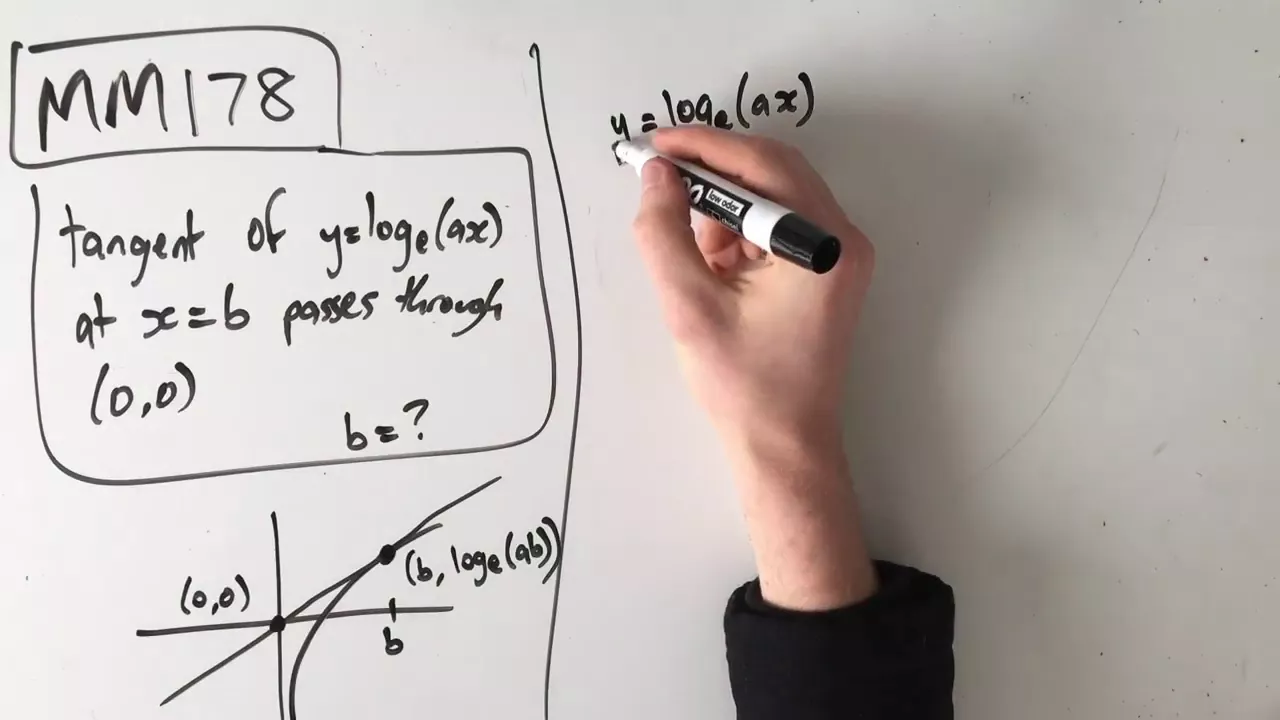 MM178
tangent of y=logₑ(ax)
at x=b passes through
(0,0)
b=?
(0,0)
(b, logₑ(ab))
b
y=logₑ(ax)
low odor